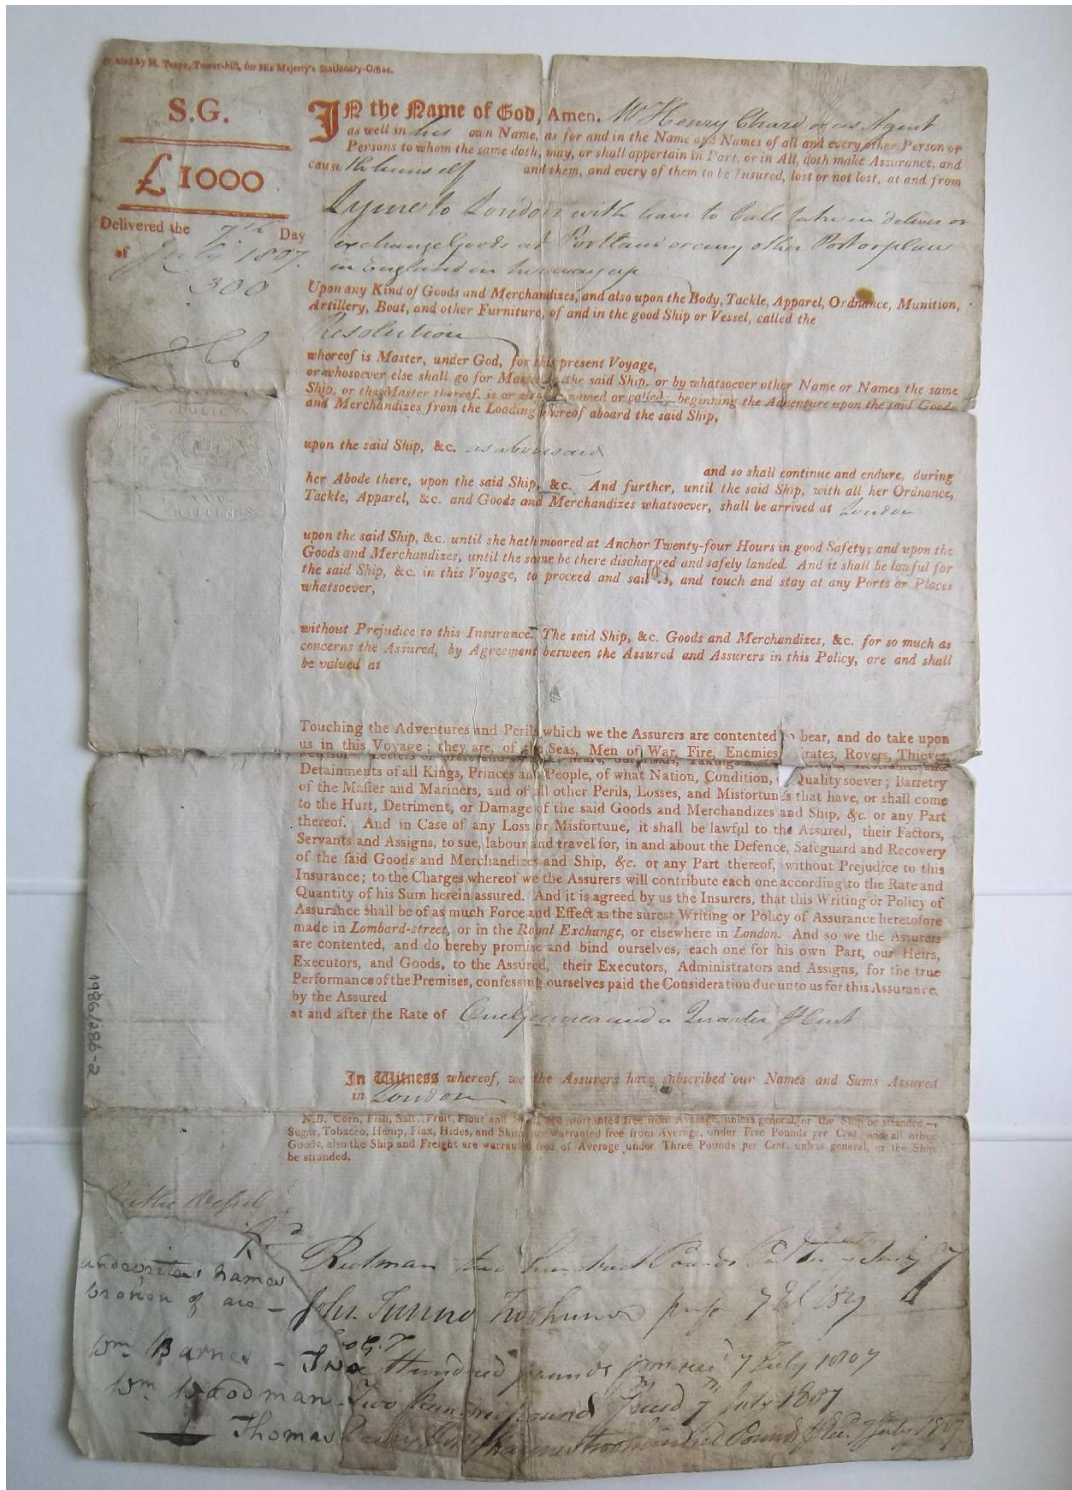 Printed by H. Teape, Tower-hill, for His Majesty's Stationary-Office.
S.G.
£1000
Delivered the 7th Day
of July 1807.
300
IN the Name of God, Amen. Mr Henry Chard or as Agent
as well in his own Name, as for and in the Name and Names of all and every other Person or
Persons to whom the same doth, may, or shall appertain in Part, or in All, doth make Assurance, and
cause himself and them, and every of them to be Insured, lost or not lost, at and from
Lyme to London with leave to Call take in deliver or
exchange Goods at Portland or any other Port or place
in England in her way up
Upon any Kind of Goods and Merchandizes, and also upon the Body, Tackle, Apparel, Ordnance, Munition,
Artillery, Boat, and other Furniture, of and in the good Ship or Vessel, called the
Resolution
whereof is Master, under God, for this present Voyage,
or whosoever else shall go for Master in the said Ship, or by whatsoever other Name or Names the same
Ship, or the Master thereof, is or shall be named or called; beginning the Adventure upon the said Goods
and Merchandizes from the Loading thereof aboard the said Ship,
POLICY
XXV
SHILLINGS
upon the said Ship, &c. as abovesaid
and so shall continue and endure, during
her Abode there, upon the said Ship, &c. And further, until the said Ship, with all her Ordnance,
Tackle, Apparel, &c. and Goods and Merchandizes whatsoever, shall be arrived at London
upon the said Ship, &c. until she hath moored at Anchor Twenty-four Hours in good Safety; and upon the
Goods and Merchandizes, until the same be there discharged and safely landed. And it shall be lawful for
the said Ship, &c. in this Voyage, to proceed and sail to, and touch and stay at any Ports or Places
whatsoever,
without Prejudice to this Insurance. The said Ship, &c. Goods and Merchandizes, &c. for so much as
concerns the Assured, by Agreement between the Assured and Assurers in this Policy, are and shall
be valued at
Touching the Adventures and Perils which we the Assurers are contented to bear, and do take upon
us in this Voyage; they are, of the Seas, Men of War, Fire, Enemies, Pirates, Rovers, Thieves,
Detainments of all Kings, Princes and People, of what Nation, Condition, Quality soever; Barretry
of the Master and Mariners, and of all other Perils, Losses, and Misfortunes that have, or shall come
to the Hurt, Detriment, or Damage of the said Goods and Merchandizes and Ship, &c. or any Part
thereof. And in Case of any Loss or Misfortune, it shall be lawful to the Assured, their Factors,
Servants and Assigns, to sue, labour and travel for, in and about the Defence, Safeguard and Recovery
of the said Goods and Merchandizes and Ship, &c. or any Part thereof, without Prejudice to this
Insurance; to the Charges whereof we the Assurers will contribute each one according to the Rate and
Quantity of his Sum herein assured. And it is agreed by us the Insurers, that this Writing or Policy of
Assurance shall be of as much Force and Effect as the surest Writing or Policy of Assurance heretofore
made in Lombard-street, or in the Royal Exchange, or elsewhere in London. And so we the Assurers
are contented, and do hereby promise and bind ourselves, each one for his own Part, our Heirs,
Executors, and Goods, to the Assured, their Executors, Administrators and Assigns, for the true
Performance of the Premises, confessing ourselves paid the Consideration due unto us for this Assurance,
by the Assured
at and after the Rate of One Guinea and a Quarter P Cent
1986/286-2
In Witness whereof, we the Assurers have subscribed our Names and Sums Assured
in London
N.B. Corn, Fish, Salt, Fruit, Flour and are warranted free from Average, unless general, or the Ship be stranded.—
Sugar, Tobacco, Hemp, Flax, Hides, and Skins are warranted free from Average, under Five Pounds per Cent. and all other
Goods, also the Ship and Freight are warranted free of Average under Three Pounds per Cent. unless general, or the Ship
be stranded.
Redman two hundred Pounds July 07
underwriters names
broken of are – John Tunno Two hundred 7 1807
Wm Barnes – Two Hundred pounds 7 July 1807
Wm Woodman Two hundred pound 7 July 1807
Thomas two hundred Pounds 7 July 1807